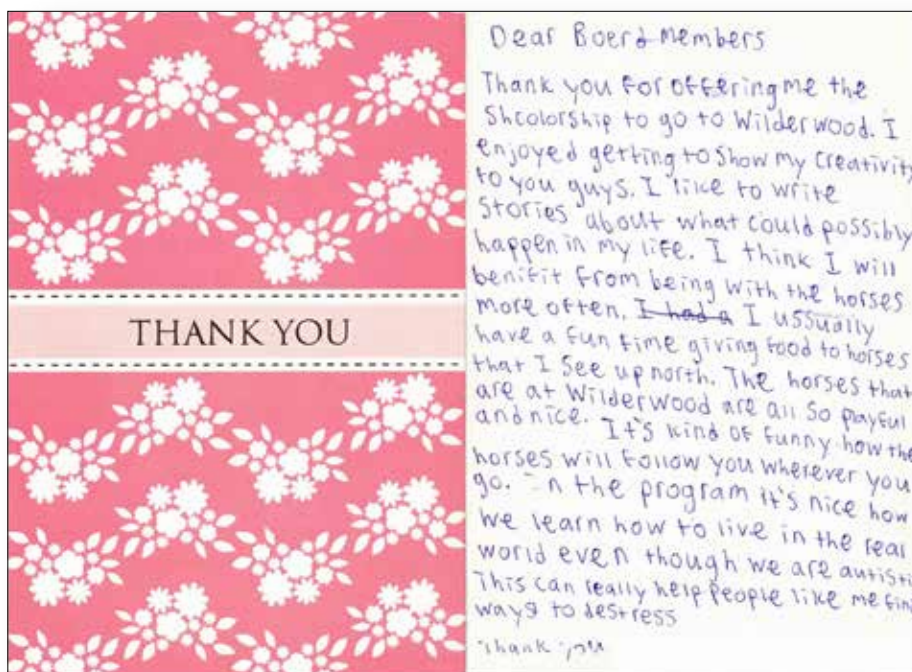 THANK YOU
Dear Boerd members
Thank you for offering me the
Shcolorship to go to Wilderwood. I
enjoyed getting to show my creativity
to you guys. I like to write
stories about what could possibly
happen in my life. I think I will
benifit from being with the horses
more often. I had a I ussually
have a fun time giving food to horses
that I see up north. The horses that
are at Wilderwood are all so playful
and nice. It's kind of funny how the
horses will follow you wherever you
go. In the program it's nice how
we learn how to live in the real
world even though we are autisti
This can really help people like me fin
ways to destress
Thank you